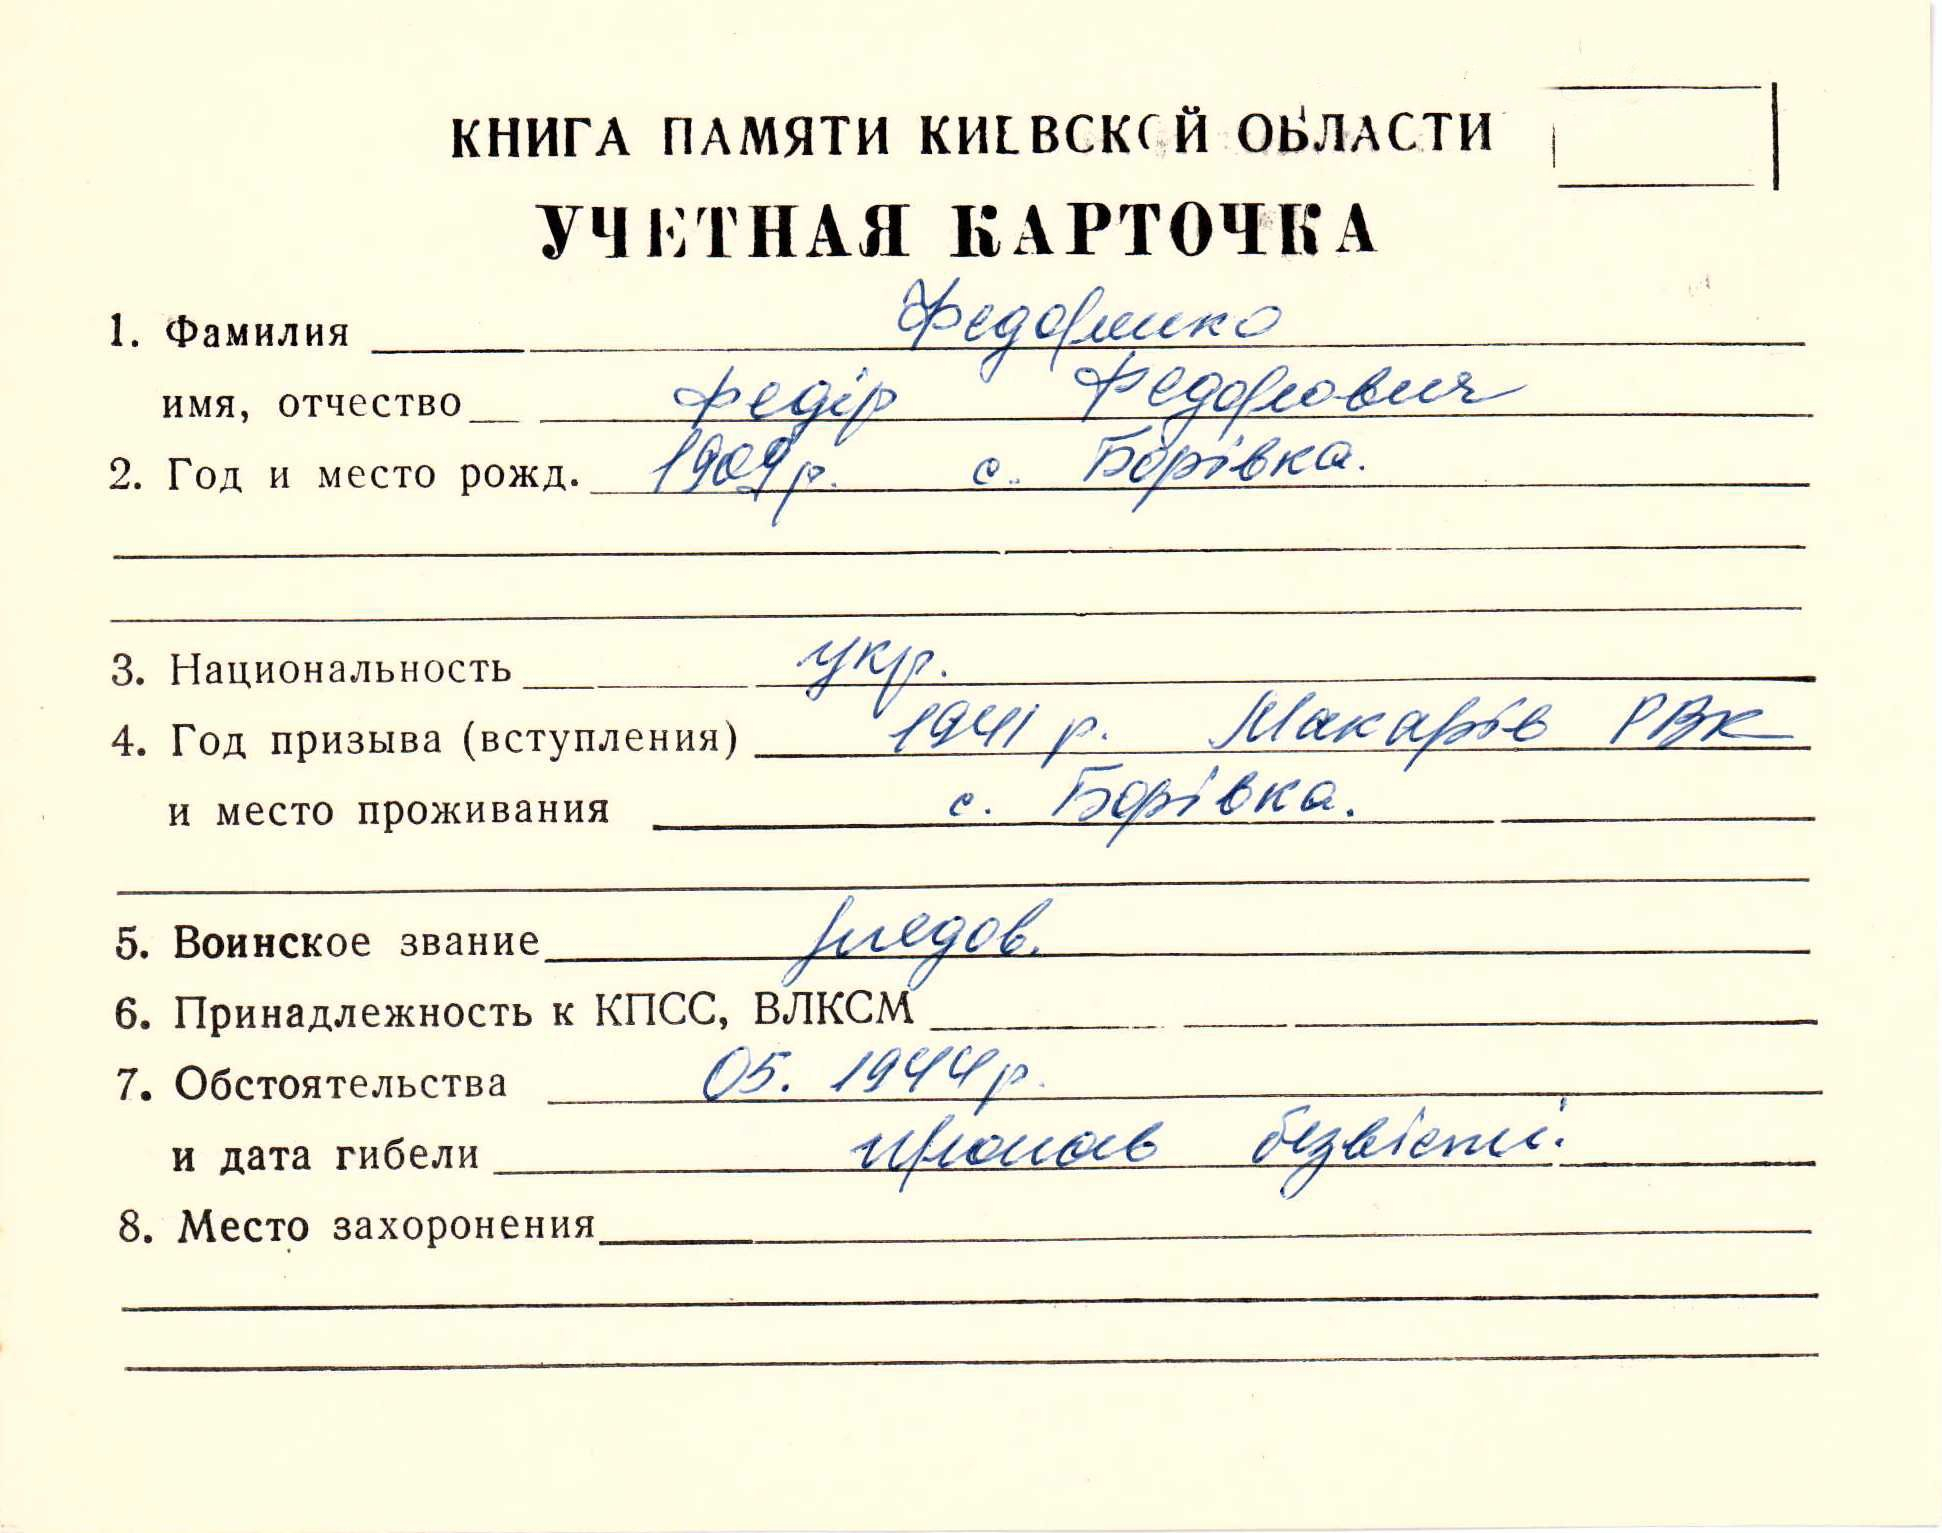 КНИГА ПАМЯТИ КИЕВСКОЙ ОБЛАСТИ
УЧЕТНАЯ КАРТОЧКА
1. Фамилия Федоринко
имя, отчество Федір Федорович
2. Год и место рожд. 1909 р. с. Борівка.
3. Национальность укр.
4. Год призыва (вступления) 1941 р. Макарів РВК
и место проживания с. Борівка.
5. Воинское звание рядов.
6. Принадлежность к КПСС, ВЛКСМ
7. Обстоятельства 05. 1944 р.
и дата гибели пропав безвісті.
8. Место захоронения